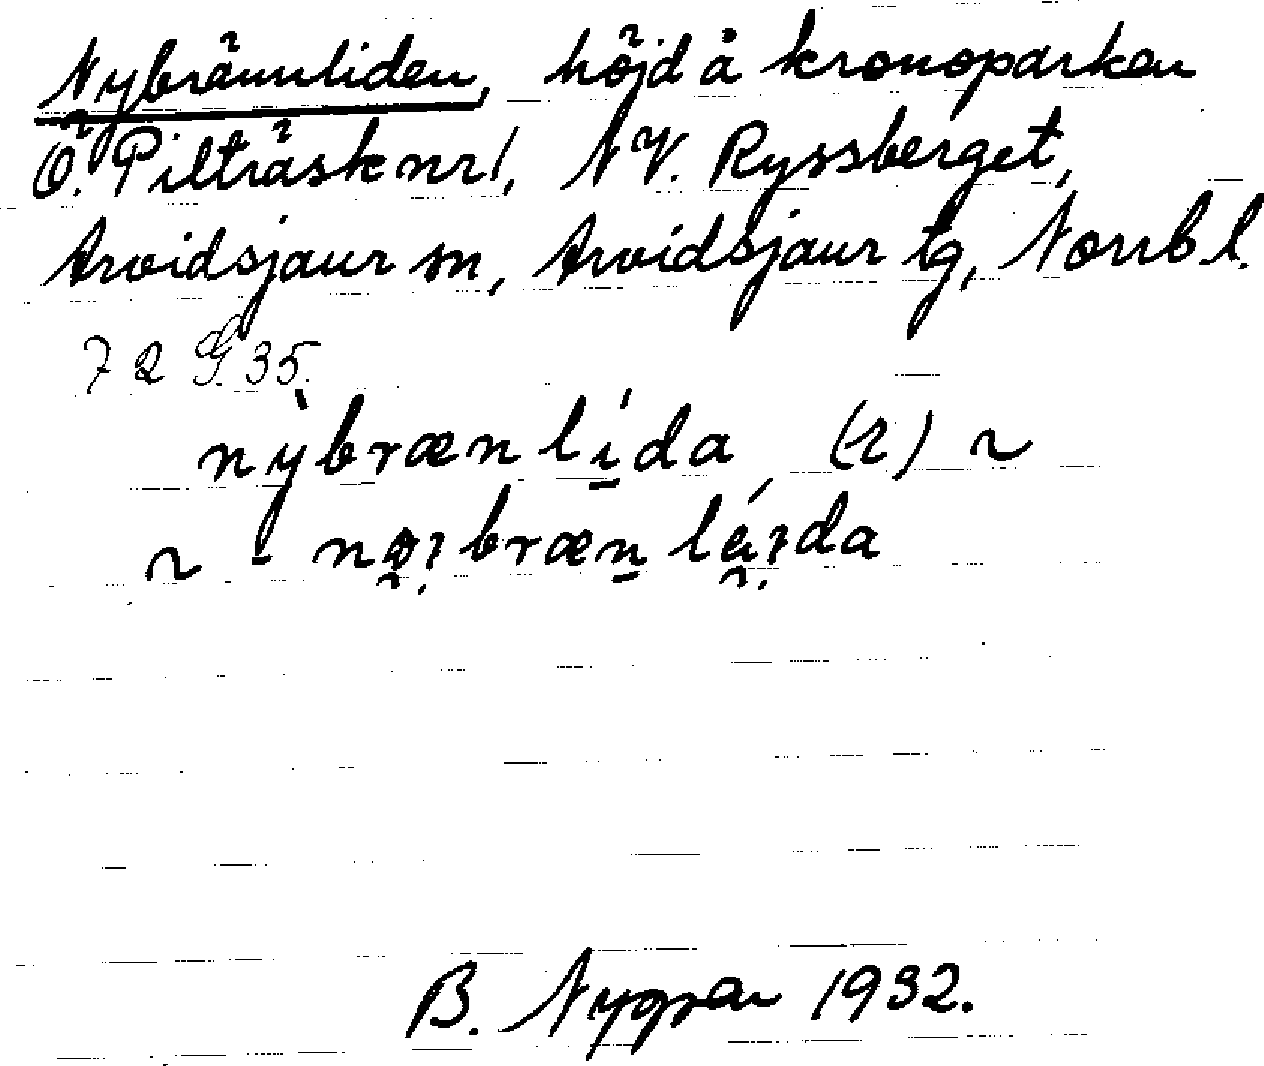 Nybrännliden, höjd å kronoparken
Ö. Pilträsk nr 1, NV. Ryssberget,
Arvidsjaur sn, Arvidsjaur tg, Norrb l.
72 G. 35.
nỳbrænlída (2) ~
~ - nøi̯brænléi̯da
B. Nygren 1932.